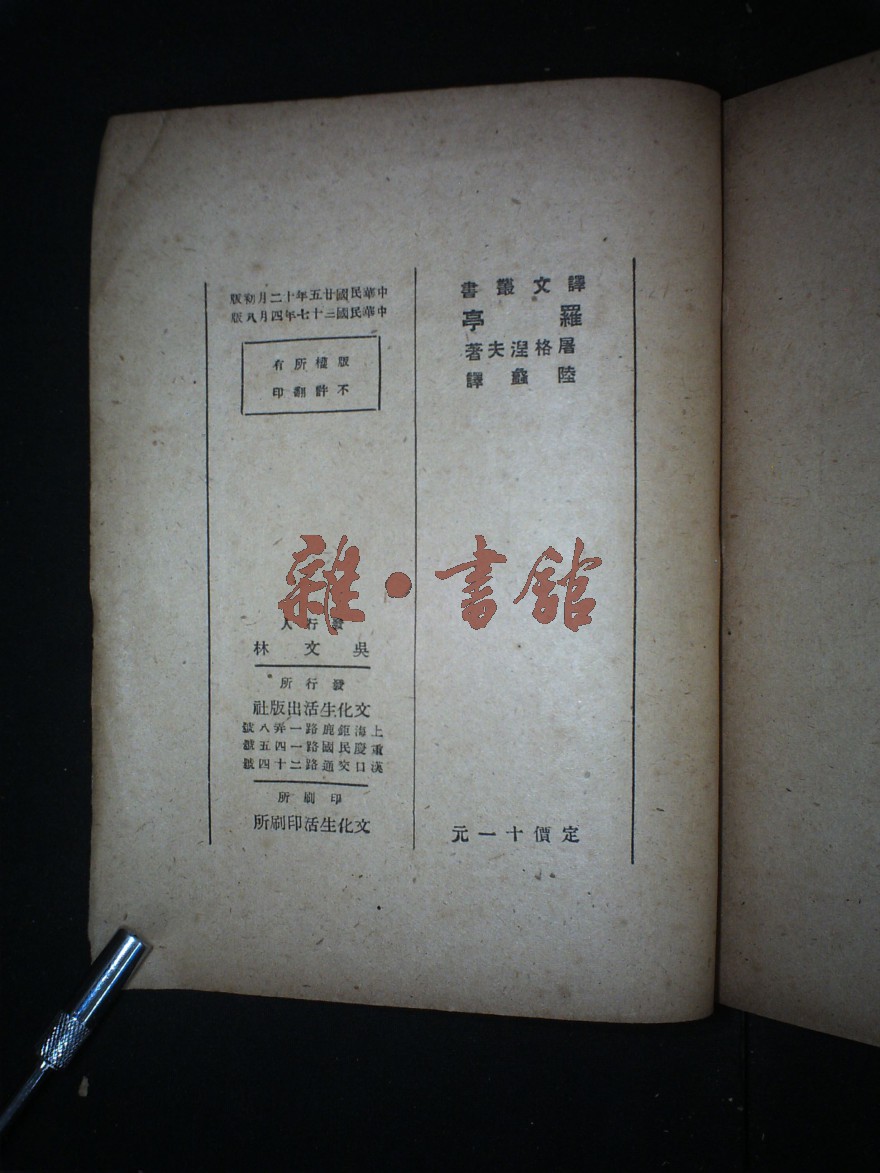 譯文叢書
羅亭
屠格涅夫著
陸蠡譯
定價十一元
中華民國廿五年十二月初版
中華民國三十七年四月八版
版權所有
不許翻印
發行人
吳文林
發行所
文化生活出版社
上海鉅鹿路一弄八號
重慶民國路一四五號
漢口交通路二十四號
印刷所
文化生活印刷所
雜·書館